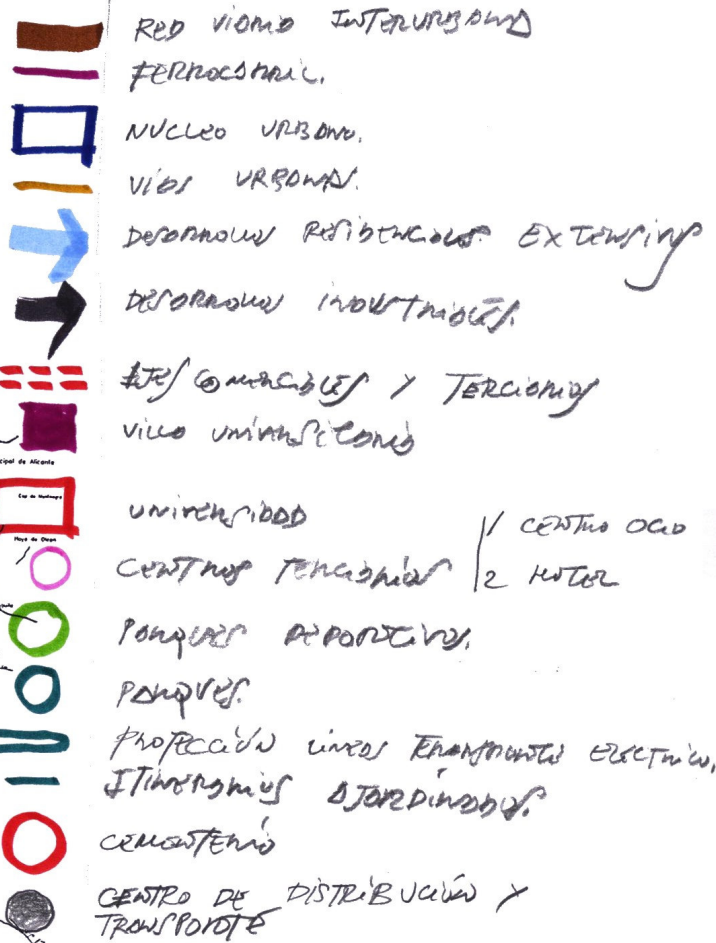 RED VIARIA INTERURBANA
FERROCARRIL.
NUCLEO URBANO.
VIAS URBANAS.
DESARROLLOS RESIDENCIALES EXTENSIVOS
DESARROLLOS INDUSTRIALES.
EJES COMERCIALES Y TERCIARIOS
VILLA UNIVERSITARIA
cipal de Alicante
UNIVERSIDAD
Hoya de
CENTROS TERCIARIOS
1 CENTRO OCIO
2 HOTEL
PARQUES DEPORTIVOS.
PARQUES.
PROTECCIÓN LINEAS TRANSPORTE ELECTRICO.
ITINERARIOS AJARDINADOS.
CEMENTERIO
CENTRO DE DISTRIBUCIÓN Y
TRANSPORTE